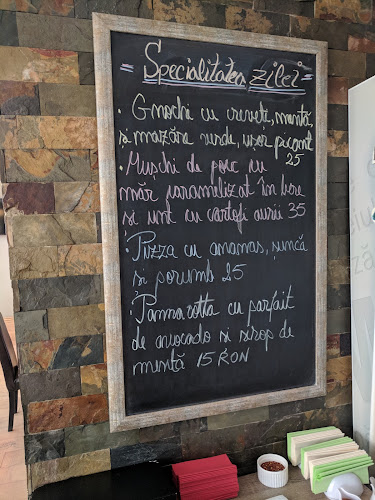 = Specialitatea zilei =
· Gnochi cu creveți, mentă,
și mazăre verde, ușor picant
25
· Mușchi de porc cu
măr caramelizat în bere
și unt cu cartofi aurii 35
· Pizza cu ananas, șuncă
și porumb 25
· Panna cotta cu parfait
de avocado si sirop de
mentă 15 RON